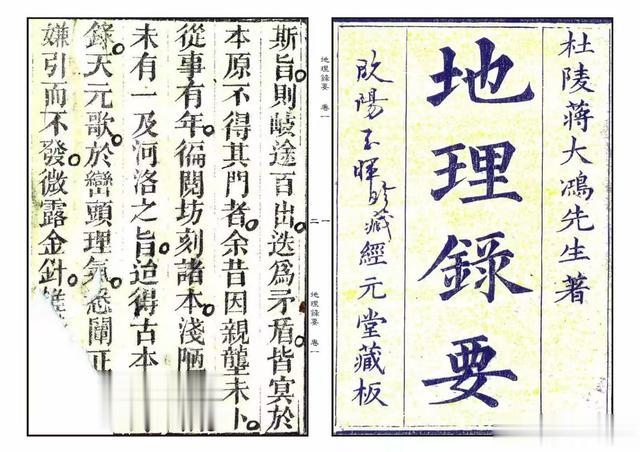 杜陵蔣大鴻先生著
地理錄要
欧陽玉暉珍藏經元堂藏板
地理錄要 卷一
一
二
地理錄要 卷一
斯旨。則岐途百出。迭為矛盾。皆冥於
本原不得其門者。余昔因親壟未卜。
從事有年。徧閱坊刻諸本淺陋
未有一及河洛之旨。迨得古本
錄。天元歌。於巒頭理氣。悉闡正
嫌引而不發。微露金針。